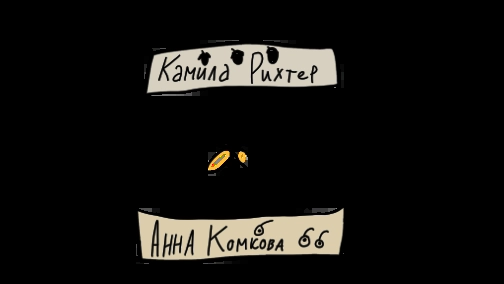 Камила Рихтер
Анна Комкова